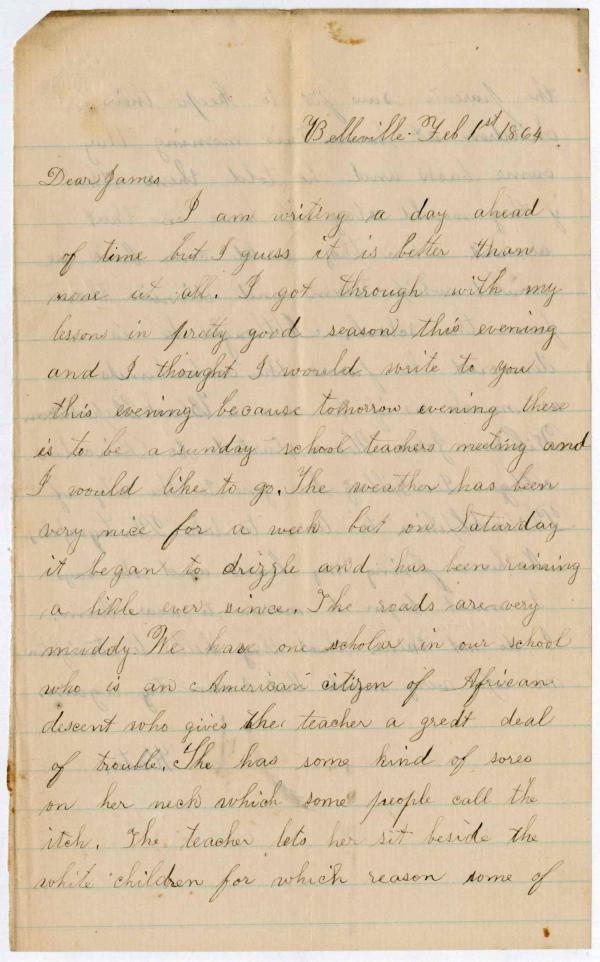 Belleville Feb 1st 1864
Dear James
I am writing a day ahead
of time but I guess it is better than
none at all. I got through with my
lessons in pretty good season this evening
and I thought I would write to you
this evening because tomorrow evening there
is to be a sunday school teachers meeting and
I would like to go. The weather has been
very nice for a week but on Saturday
it began to drizzle and has been raining
a little ever since. The roads are very
muddy We have one scholar in our school
who is an American citizen of African
descent who gives the teacher a great deal
of trouble. She has some kind of sores
on her neck which some people call the
itch. The teacher lets her sit beside the
white children for which reason some of